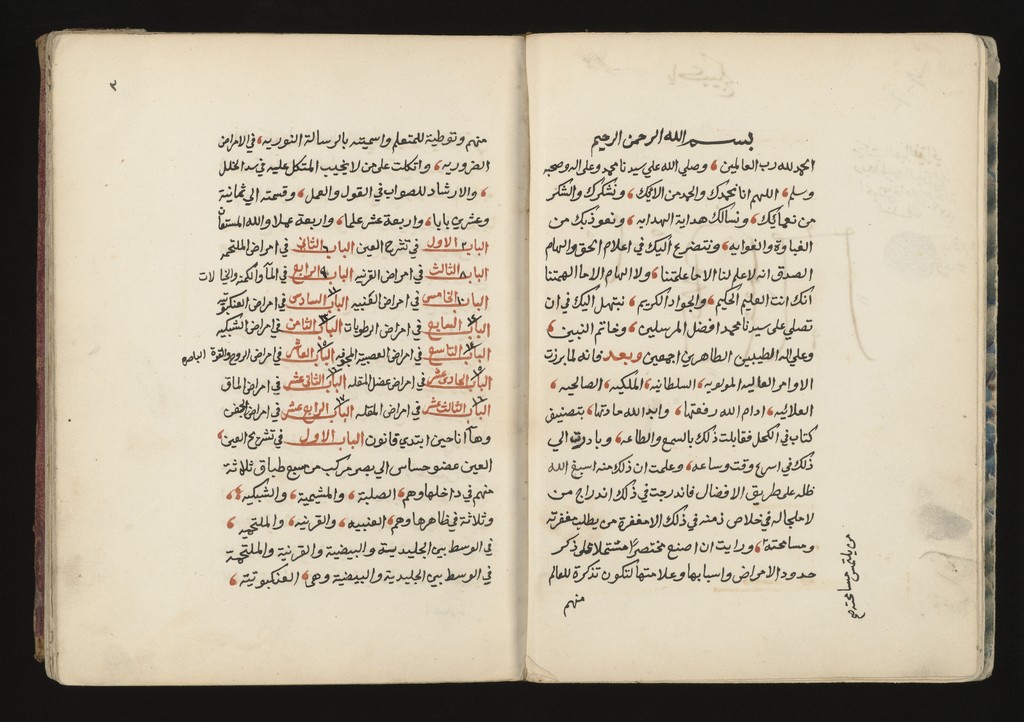 بسم الله الرحمن الرحيم
الحمد لله رب العالمين وصلي الله علي سيدنا محمد وعلي اله وصحبه
وسلم اللهم انا نحمدك والحمد من الائك ونشكرك والشكر
من نعمائك ونسالك هداية الهدايه ونعوذ بك من
الغباوة والغوايه ونتضرع اليك في اعلام الحق والهام
الصدق انه لا علم لنا الا ما علمتنا ولا الهام الا ما الهمتنا
انك انت العليم الحكيم والجواد الكريم نبتهل اليك في ان
تصلي علي سيدنا محمد افضل المرسلين وخاتم النبين
وعلي اله الطيبين الطاهرين اجمعين وبعد فانه لما برزت
الاوامر العاليه المولويه السلطانيه الملكيه الصالحيه
العلائيه ادام الله رفعتها وابد الله مادتها بتصنيف
كتاب في الكحل فقابلت ذلك بالسمع والطاعه وبادرت الي
ذلك في اسرع وقت وساعه وعلمت ان ذلك منه اسبغ الله
ظله علي طريق الافضال فاندرجت في ذلك اندراج من
لا محاله في خلاص ذمته في ذلك الا مغفرة من يطلب مغفرته
ومسامحته ورايت ان اصنع مختصرا مشتملا علي ذكر
حدود الامراض واسبابها وعلامتها لتكون تذكرة للعالم
منهم
من يلتمس مسامحته صح
٢
منهم وتوطية للمتعلم واسميته بالرسالة النوريه في الامراض
الضروريه واتكلت علي من لا يخيب المتكل عليه في سد الخلل
والارشاد للصواب في القول والعمل وقسمته الي ثمانية
وعشرين بابا واربعة عشر علما واربعة عملا والله المستعان
الباب الاول في تشرح العين الباب الثاني في امراض الملتحمه
الباب الثالث في امراض القرنيه الباب الرابع في الماء والكمنه والخيالات
الباب الخامس في امراض العنبيه الباب السادس في امراض العنكبوتيه
الباب السابع في امراض الرطوبات الباب الثامن في امراض الشبكيه
الباب التاسع في امراض العصبية المجوفه الباب العاشر في امراض الروح والقوة الباصره
الباب الحادي عشر في امراض عضل المقله الباب الثاني عشر في امراض الماق
الباب الثالث عشر في امراض المقله الباب الرابع عشر في امراض الجفن
وها انا حين ابتدي قانون الباب الاول في تشريح العين
العين عضو حساس الي بصر مركب من سبع طباق ثلاثة
منهم في داخلها وهم الصلبة والمشيمية والشبكيه
وثلاثة في ظاهرها وهم العنبيه والقرنيه والملتحمه
في الوسط بين الجليدية والبيضية والقرنية والملتحمة
في الوسط بين الجليدية والبيضية وهي العنكبوتية